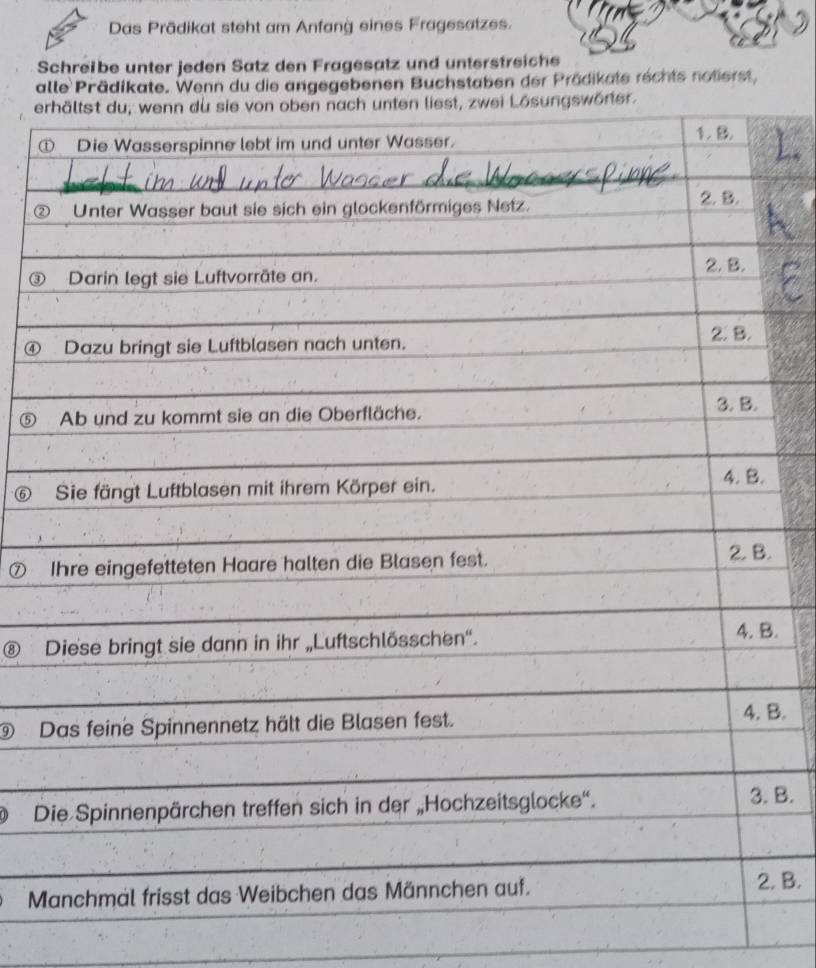 Das Prädikat steht am Anfang eines Fragesatzes.
Schreibe unter jeden Satz den Fragesatz und unterstreiche
alle Prädikate. Wenn du die angegebenen Buchstaben der Prädikate rechts notierst,
erhältst du, wenn du sie von oben nach unten liest, zwei Lösungswörter.
① Die Wasserspinne lebt im und unter Wasser. 1. B. L
Lebt im und unter Wasser die Wasserspinne
② Unter Wasser baut sie sich ein glockenförmiges Netz. 2. B. A
③ Darin legt sie Luftvorräte an. 2. B. E
④ Dazu bringt sie Luftblasen nach unten. 2. B.
⑤ Ab und zu kommt sie an die Oberfläche. 3. B.
⑥ Sie fängt Luftblasen mit ihrem Körper ein. 4. B.
⑦ Ihre eingefetteten Haare halten die Blasen fest. 2. B.
⑧ Diese bringt sie dann in ihr „Luftschlösschen“. 4. B.
⑨ Das feine Spinnennetz hält die Blasen fest. 4. B.
Die Spinnenpärchen treffen sich in der „Hochzeitsglocke“. 3. B.
Manchmal frisst das Weibchen das Männchen auf. 2. B.